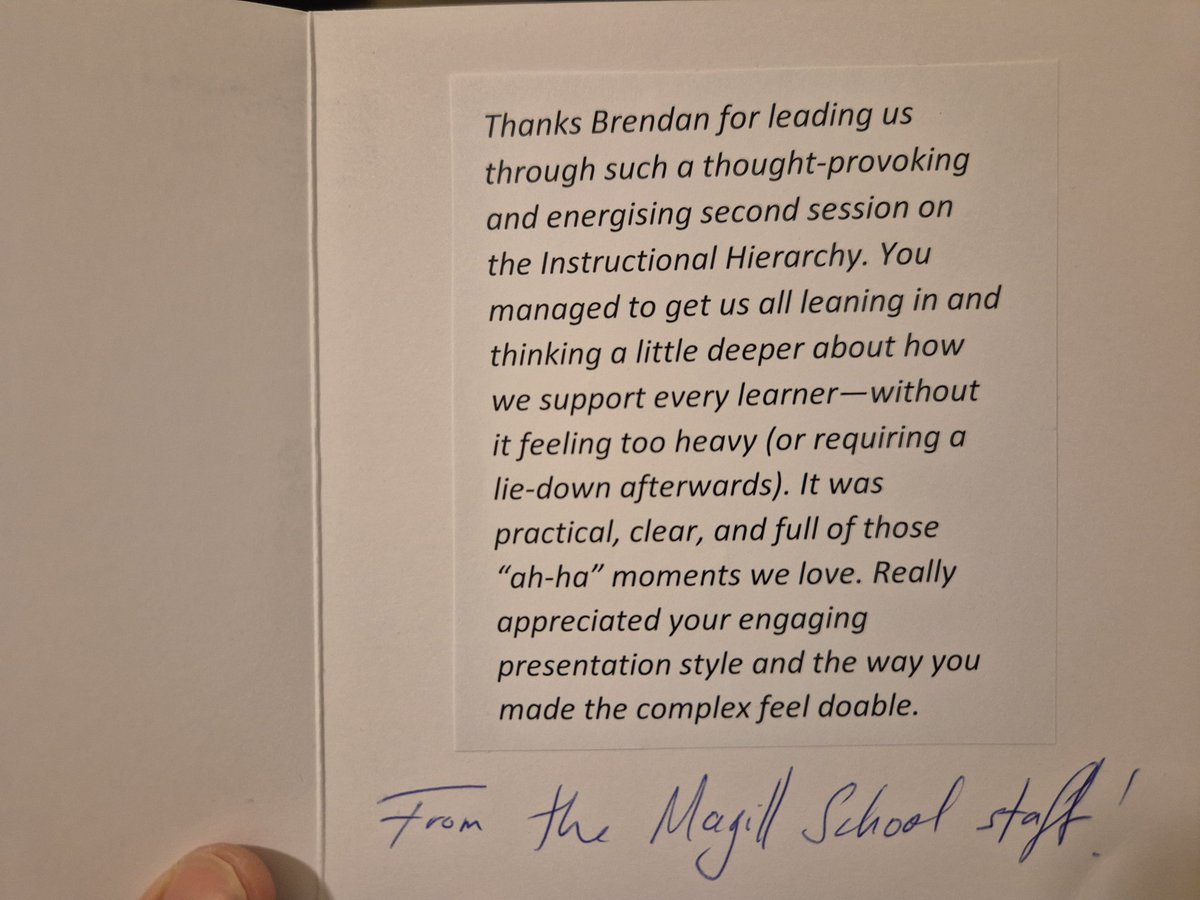 Thanks Brendan for leading us
through such a thought-provoking
and energising second session on
the Instructional Hierarchy. You
managed to get us all leaning in and
thinking a little deeper about how
we support every learner—without
it feeling too heavy (or requiring a
lie-down afterwards). It was
practical, clear, and full of those
“ah-ha” moments we love. Really
appreciated your engaging
presentation style and the way you
made the complex feel doable.
From the Magill School staff!